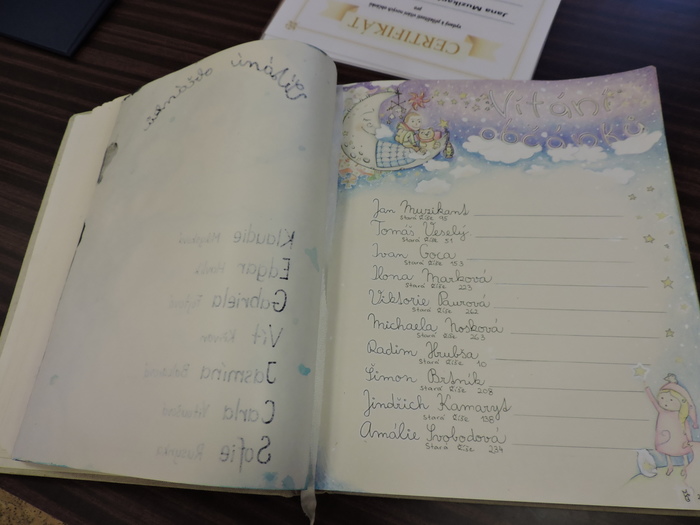 Vítání občánků
Klaudie
Edgar
Gabriela
Vít
Jasmína
Carla
Sofie
CERTIFIKÁT
pro
Vítání
občánků
Jan Muzikant
Stará Říše 95
Tomáš Veselý
Stará Říše 51
Ivan Goca
Stará Říše 153
Ilona Marková
Stará Říše 223
Viktorie Paurová
Stará Říše 262
Michaela Nosková
Stará Říše 263
Radim Hrubša
Stará Říše 10
Šimon Brtník
Stará Říše 208
Jindřich Kamaryt
Stará Říše 138
Amálie Svobodová
Stará Říše 234